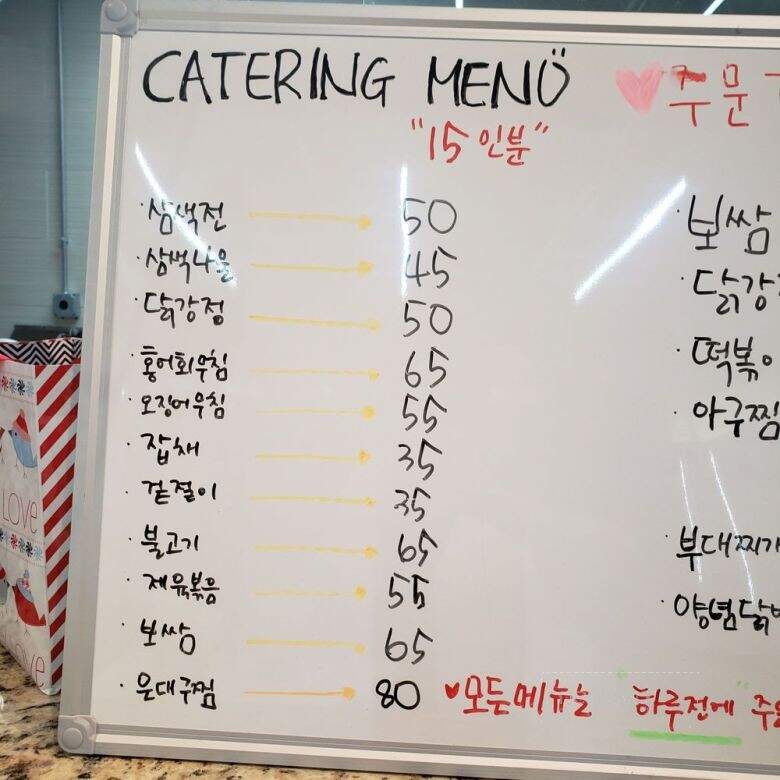 CATERING MENU
"15 인분"
· 삼색전 → 50
· 삼백나물 → 45
· 닭강정 → 50
· 홍어회무침 → 65
· 오징어무침 → 55
· 잡채 → 35
· 겉절이 → 35
· 불고기 → 65
· 제육볶음 → 55
· 보쌈 → 65
· 은대구찜 → 80
♥모든메뉴는 "하루전에" 주
♥주문
· 보쌈
· 닭강
· 떡볶이
· 아구찜
· 부대찌개
· 양념닭
LOVE
Love